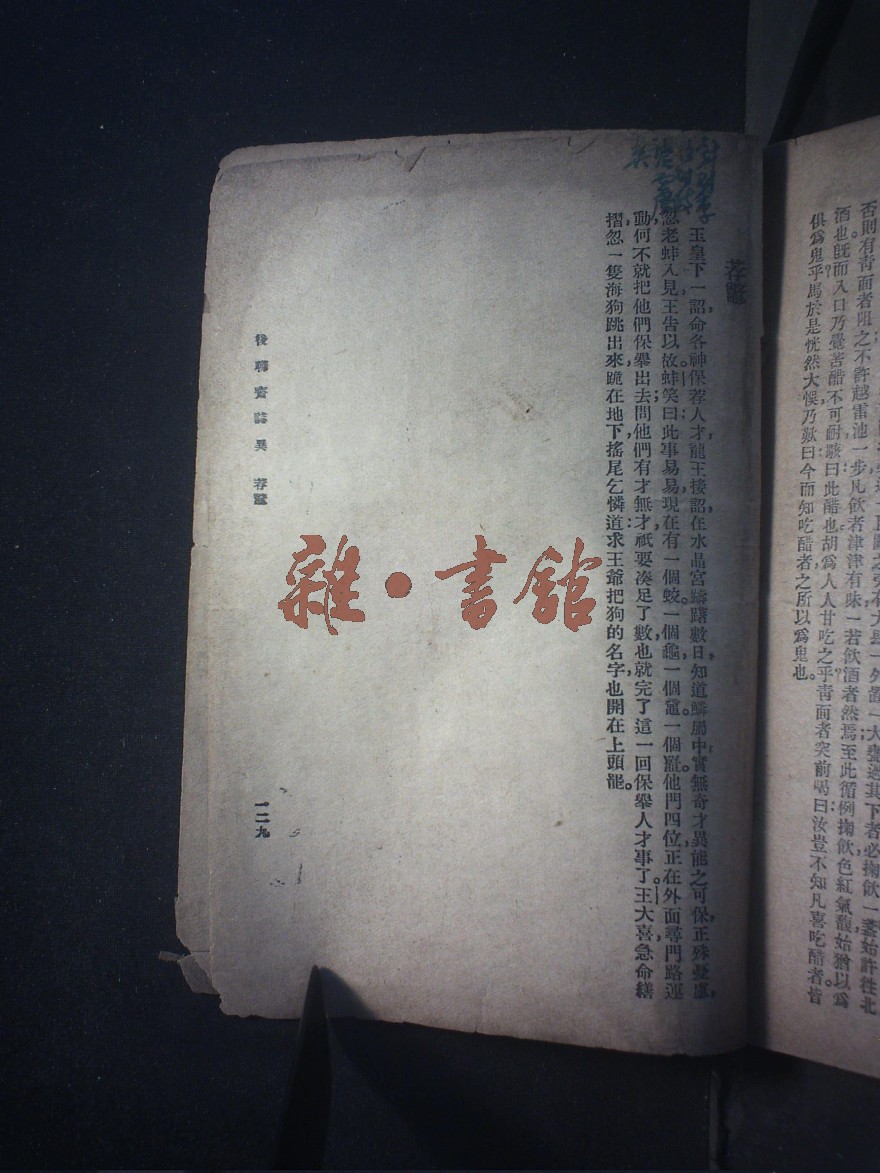 否則有青面者阻之不許越雷池一步凡飲者津津有味一若飲酒者然焉至此循例掬飲色紅氣馥始猶以爲
酒也旣而入口乃覺苦酷不可耐駭曰此酷也胡爲人人甘吃之乎靑面者突前喝曰汝豈不知凡喜吃醋者皆
俱爲鬼乎馬於是恍然大悞乃歎曰今而知吃醋者之所以爲鬼也。
荐鼈
玉皇下一詔命各神保荐人才龍王接詔在水晶宮躊躇數日知道鱗屬中實無奇才異能之可保正殊憂慮
忽老蚌入見王告以故蚌笑曰此事易易現在有一個蛟一個龜一個鼋一個鼉他門四位正在外面尋門路運
動何不就把他們保舉出去問他們有才無才祇要湊足了數也就完了這一回保舉人才事了王大喜急命繕
摺忽一隻海狗跳出來跪在地下搖尾乞憐道求王爺把狗的名字也開在上頭罷。
後聊齋誌異 荐鼈
一二九
雜·書舘